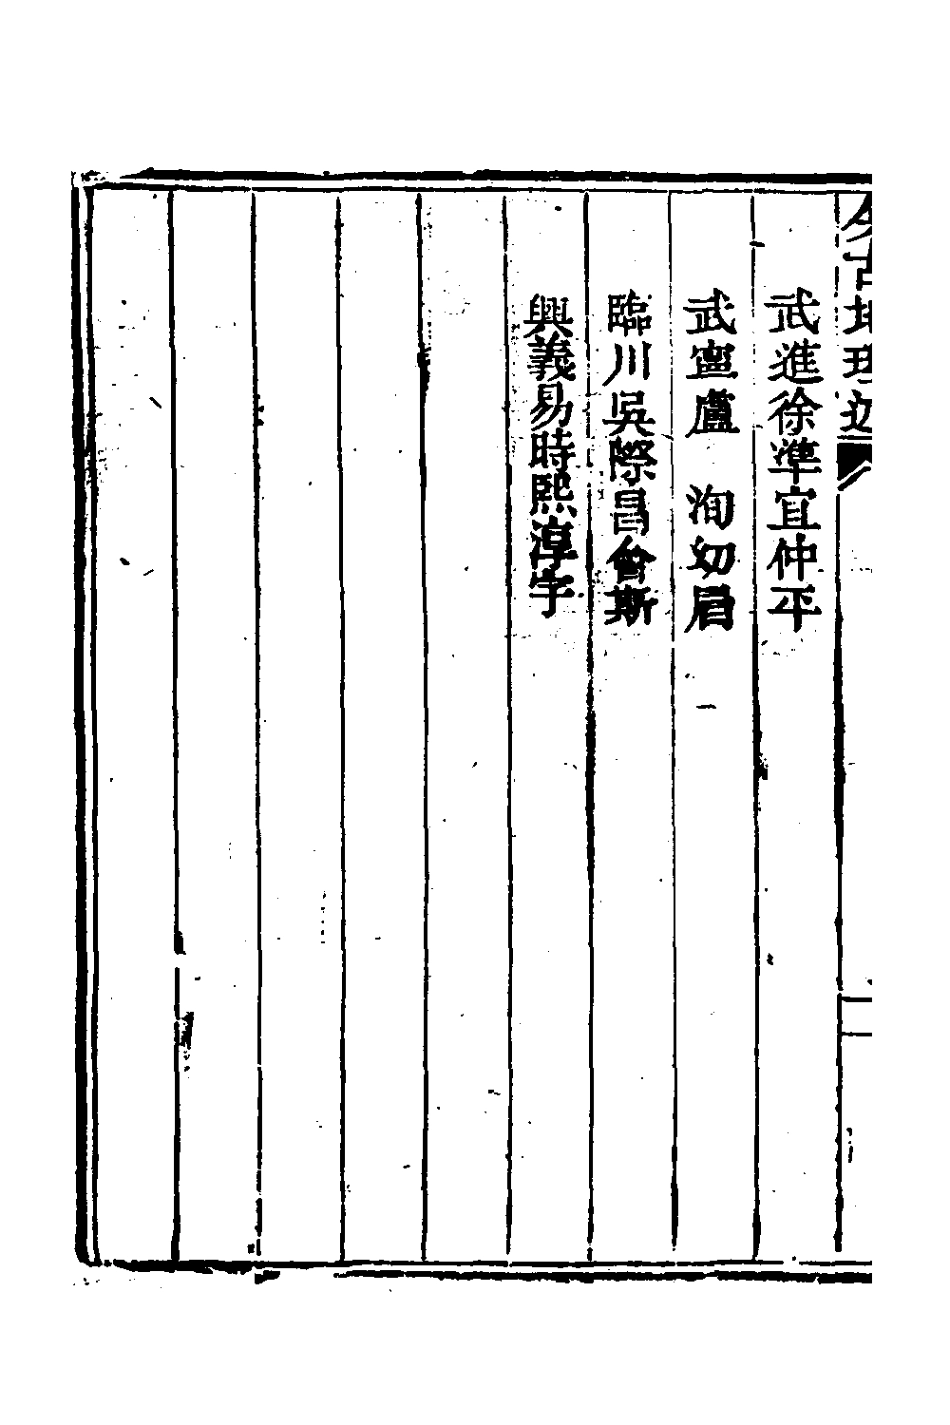 今古地理述
武進徐準宜仲平
武寧盧　洵幼眉
臨川吳際昌會斯
興義易時熙淳宇